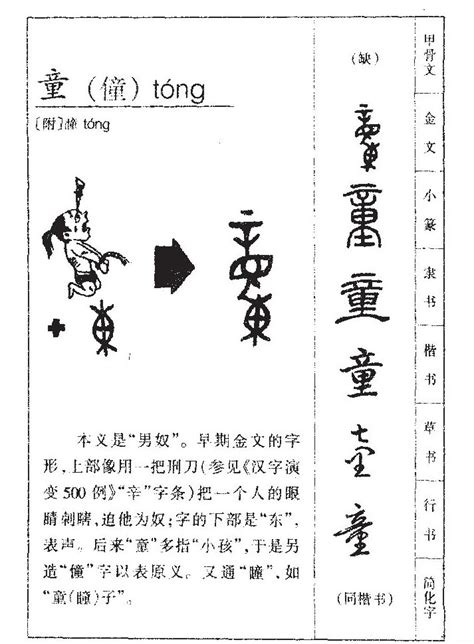 童（僮）tóng
〔附〕瞳 tóng
本文是“男奴”。早期金文的字
形，上部像用一把刑刀（参见《汉字演
变500例》“辛”字条）把一个人的眼
睛刺瞎，迫他为奴；字的下部是“东”，
表声。后来“童”多指“小孩”，于是另
造“僮”字以表原义。又通“瞳”，如
“童（瞳）子”。
（缺）
童
童
童
童
（同楷书）
甲骨文
金文
小篆
隶书
楷书
草书
行书
简化字